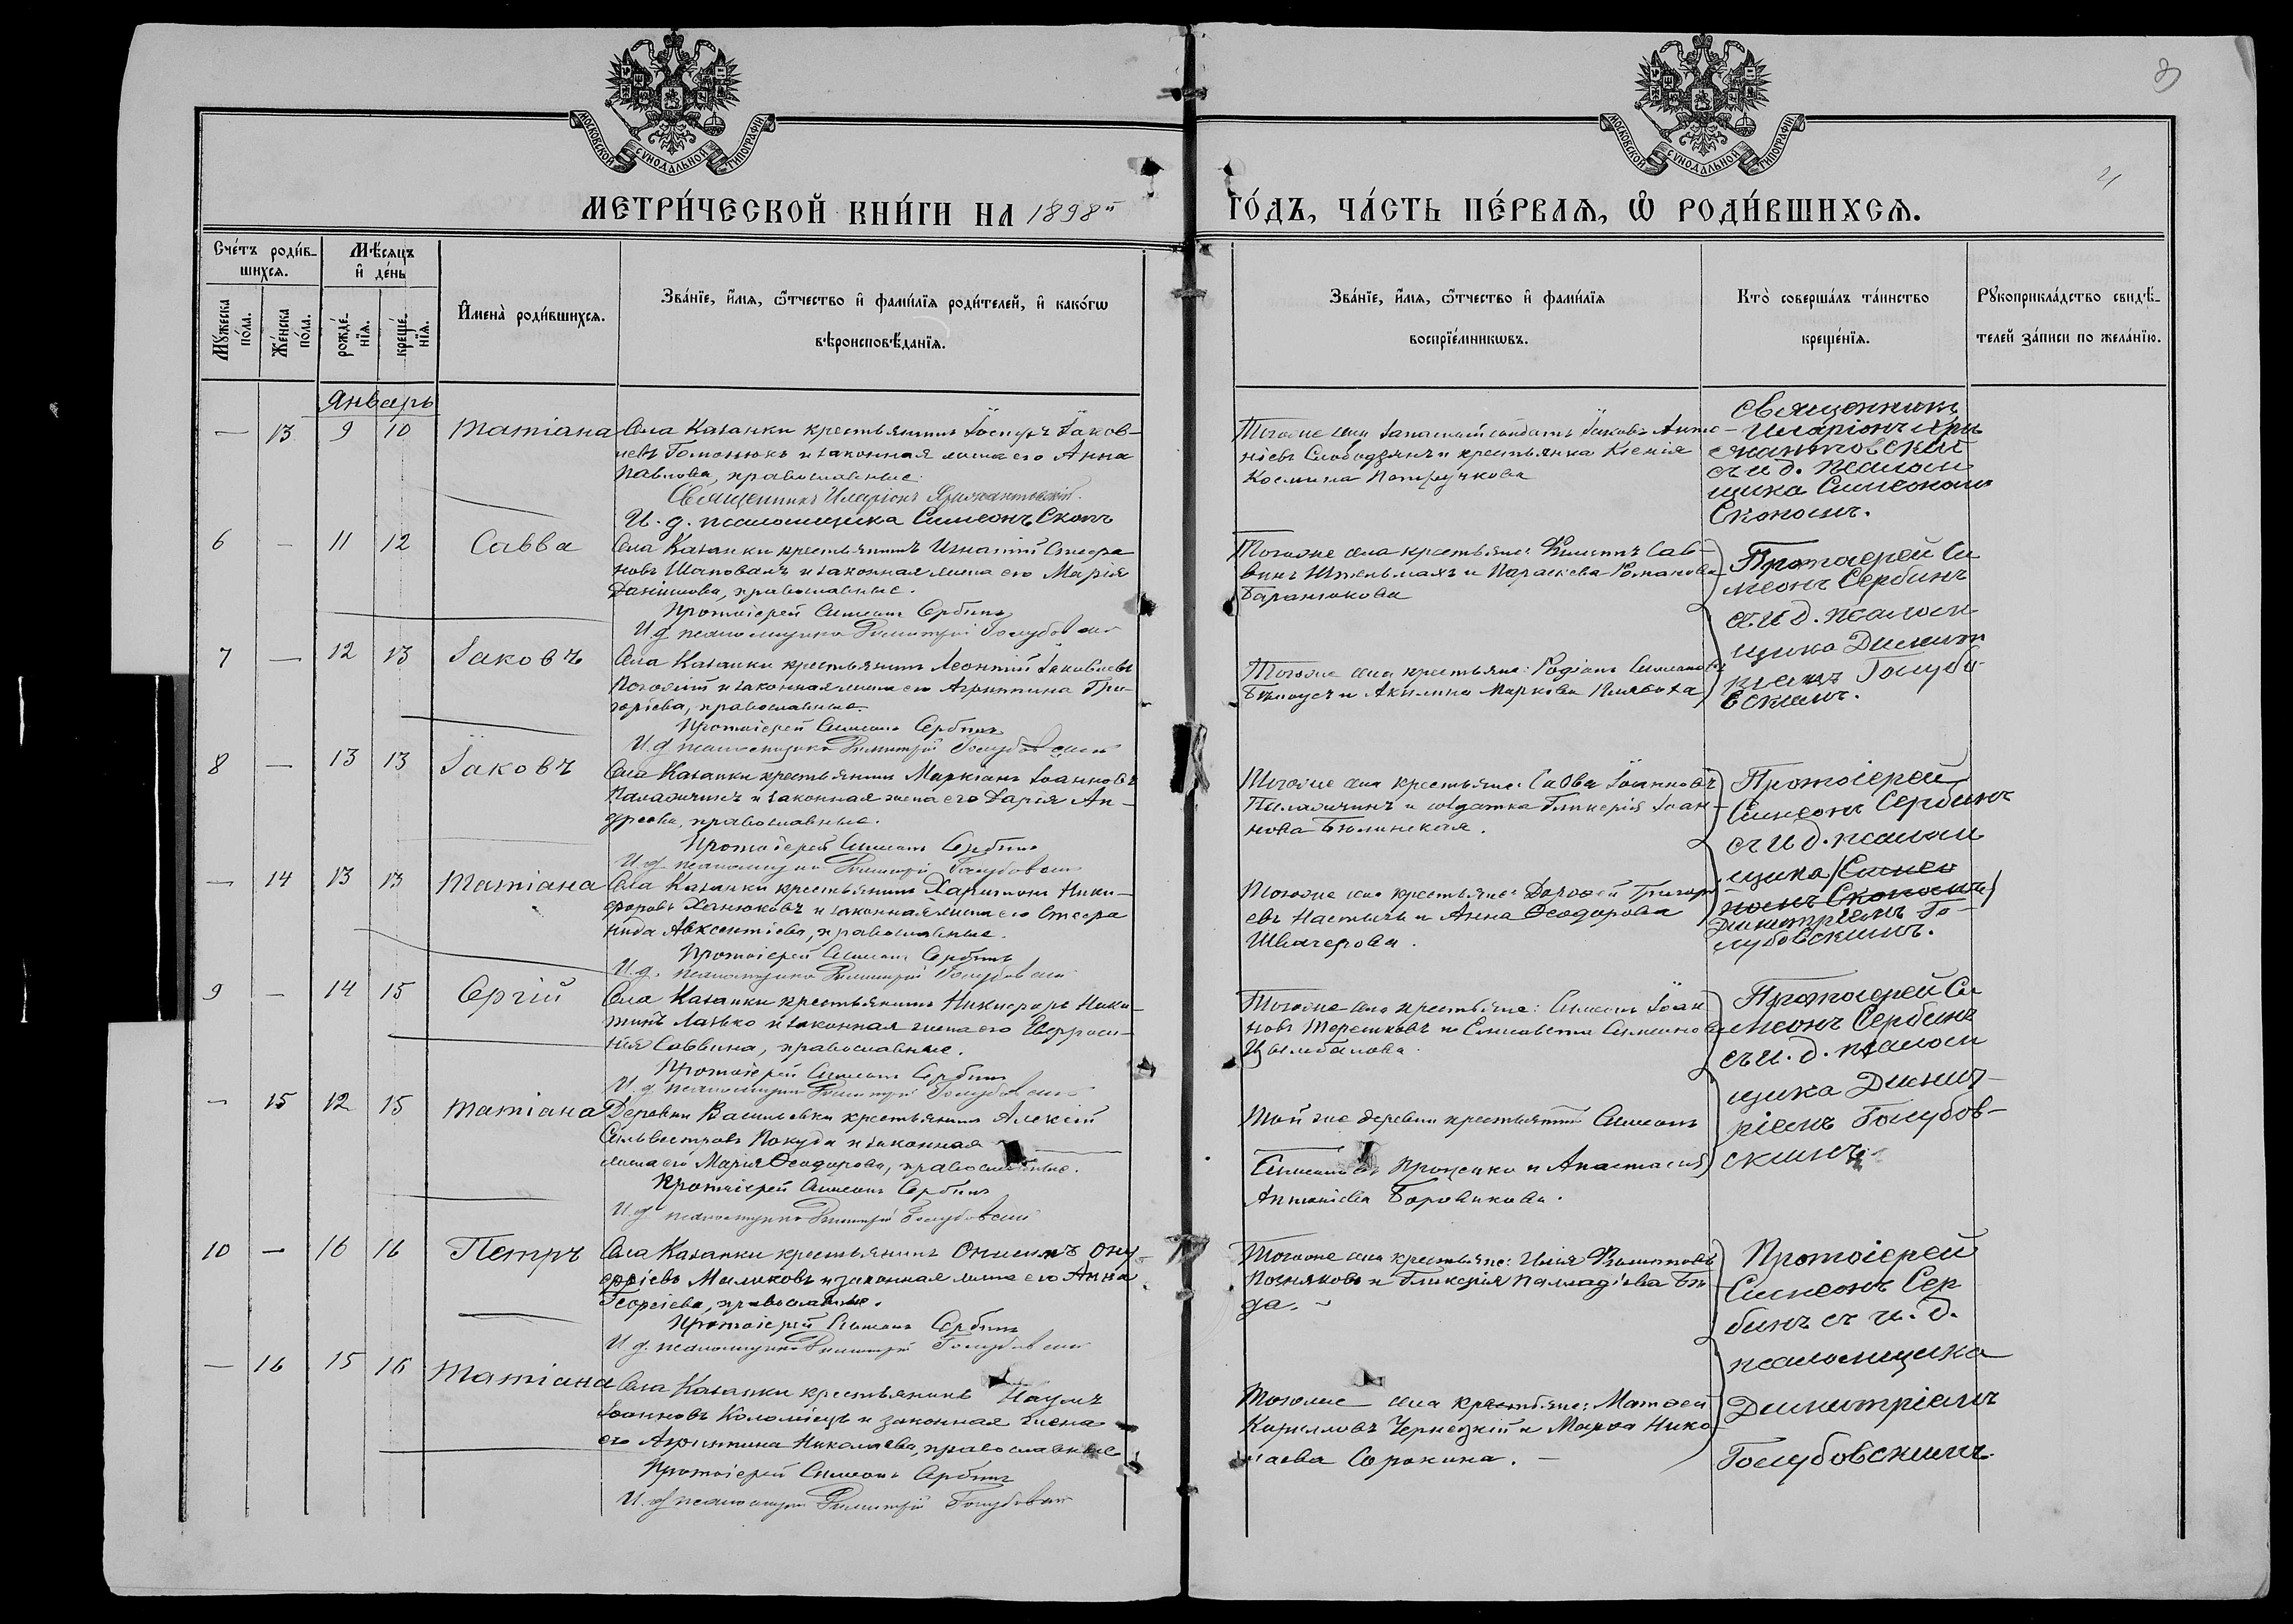 МОСКОВСКОЙ СѴНОДАЛЬНОЙ ТИПОГРАФІИ
МОСКОВСКОЙ СѴНОДАЛЬНОЙ ТИПОГРАФІИ
МЕТРИ́ЧЕСКОЙ КНИ́ГИ НА 1898й
ГО́ДЪ, ЧА́СТЬ ПЕ́РВАЯ, Ѡ РОДИ́ВШИХСЯ.
Сче́тъ роди́в-
шихся.
Мѣ́сяцъ
и де́нь
Му́жеска
по́ла.
Же́нска
по́ла.
рожде́-
нїя.
креще́-
нїя.
И҆мена̀ роди́вшихся.
Зва́нїе, и҆́мя, ѻ҆́тчество и҆ фами́лїя роди́телей, и҆ како́гѡ
вѣроисповѣ́данїя.
Зва́нїе, и҆́мя, ѻ҆́тчество и҆ фами́лїя
воспрїе́мникѡвъ.
Кто̀ соверша́лъ та́инство
креще́нїя.
Рꙋкоприкла́дство свидѣ́-
телей за́писи по жела́нїю.
Январь
— 13 9 10 Татіана
Села Казанки крестьянинъ Іосифъ Іаков-
левъ Гомонюкъ и законная жена его Анна
Павлова, православные.
Священникъ Иларіонъ
И. д. псаломщика Симеонъ Сконъ
Тогоже села запасный солдатъ Іаковъ Анто-
ніевъ Слободзянъ и крестьянка Ксенія
Космина
Священникъ
Иларіонъ
съ и д. псалом
щика Симеономъ
Скономъ.
6 — 11 12 Савва
Села Казанки крестьянинъ Игнатій Стефа
новъ Шаповалъ и законная жена его Марія
Даніилова, православные.
Протоіерей Симеонъ Сербинъ
И. д. псаломщика Димитрій Голубовскій
Тогоже села крестьяне: Филиппъ Сав-
винъ Штельмахъ и Параскева Романова
Баранюкова
Протоіерей Си
меонъ Сербинъ
съ и д. псалом
щика Димит
ріемъ Голубо-
вскимъ.
7 — 12 13 Іаковъ
Села Казанки крестьянинъ Леонтій Іаковлевъ
и законная жена его Агриппина Гри-
горіева, православные.
Протоіерей Симеонъ Сербинъ
И. д. псаломщика Димитрій Голубовскій
Тогоже села крестьяне: Родіонъ Симеоновъ
Бѣлоусъ и Акилина Маркова
8 — 13 13 Іаковъ
Села Казанки крестьянинъ Маркіанъ Іоанновъ
Паламичинъ и законная жена его Дарія Ан-
дреева, православные.
Протоіерей Симеонъ Сербинъ
И. д. псаломщика Димитрій Голубовскій
Тогоже села крестьяне: Савва Іоанновъ
Паламичинъ и солдатка Гликерія Іоан-
нова Бялинская.
Протоіерей
Симеонъ Сербинъ
съ и д. псалом
щика Симео
номъ Скономъ
Димитріемъ Го-
лубовскимъ.
— 14 13 13 Татіана
Села Казанки крестьянинъ Харитонъ Ники-
форовъ Ханюковъ и законная жена его Стефа
нида Авксентіева, православные.
Протоіерей Симеонъ Сербинъ
И. д. псаломщика Димитрій Голубовскій
Тогоже села крестьяне: Дороѳей Григорі
евъ Настычъ и Анна Ѳеодорова
Швачерова.
9 — 14 15 Сергій
Села Казанки крестьянинъ Никифоръ Ники-
тинъ Лазько и законная жена его Евфроси-
нія Саввина, православные.
Протоіерей Симеонъ Сербинъ
И. д. псаломщика Димитрій Голубовскій
Тогоже села крестьяне: Симеонъ Іоан
новъ Терешковъ и Елисавета Симеонова
Цымбалова.
Протоіерей Си
меонъ Сербинъ
съ и. д. псалом
щика Димит-
ріемъ Голубов-
скимъ.
— 15 12 15 Татіана
Деревни Васильевки крестьянинъ Алексій
Сильвестровъ Покуда и законная
жена его Марія Ѳеодорова, православные.
Протоіерей Симеонъ Сербинъ
И. д. псаломщика Димитрій Голубовскій
Той же деревни крестьяне Симеонъ
Симеоновъ Проценко и Анастасія
Антоніева Боровикова.
10 — 16 16 Петръ
Села Казанки крестьянинъ Онисимъ Ону-
фріевъ Малюковъ и законная жена его Анна
Георгіева, православные.
Протоіерей Симеонъ Сербинъ
И. д. псаломщика Димитрій Голубовскій
Тогоже села крестьяне: Илія Филипповъ
Позняковъ и Гликерія Палладіева Бѣ
да.
Протоіерей
Симеонъ Сер
бинъ съ и. д.
псаломщика
Димитріемъ
Голубовскимъ.
— 16 15 16 Татіана
Села Казанки крестьянинъ Наумъ
Іоанновъ Коломіецъ и законная жена
его Агриппина Николаева, православные
Протоіерей Симеонъ Сербинъ
И. д. псаломщика Димитрій Голубовскій
Тогоже села крестьяне: Матѳей
Кирилловъ Чернецкій и Марѳа Нико
лаева Сорокина.